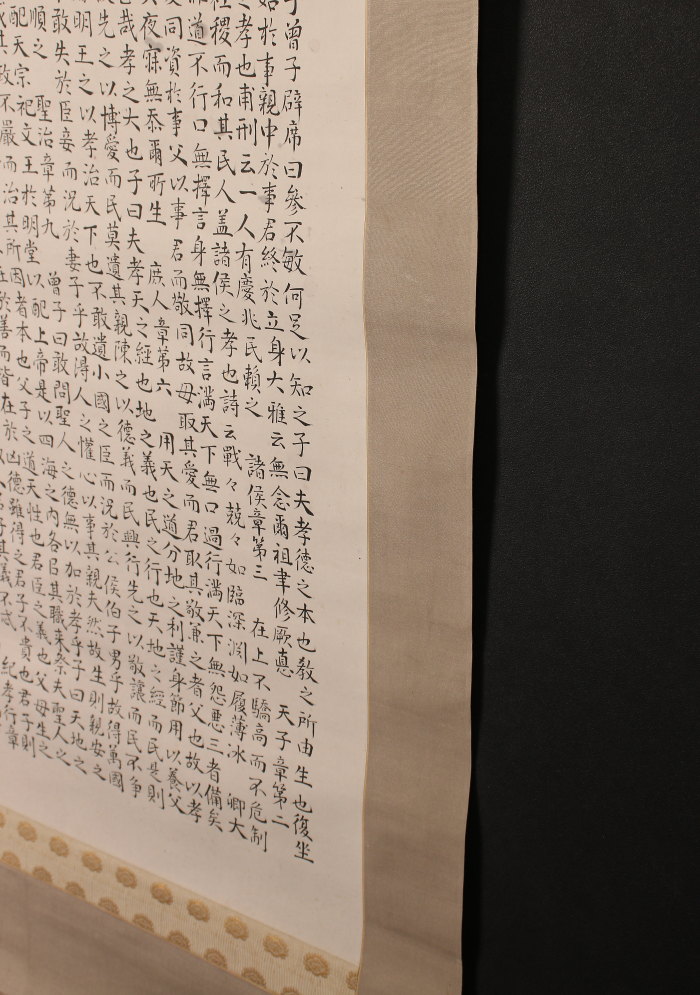 子曾子辟席曰參不敏何足以知之子曰夫孝德之本也教之所由生也復坐
始於事親中於事君終於立身大雅云無念爾祖聿修厥德 天子章第二
之孝也甫刑云一人有慶兆民賴之 諸侯章第三 在上不驕高而不危制
社稷而和其民人蓋諸侯之孝也詩云戰々兢々如臨深淵如履薄冰 卿大
道不行口無擇言身無擇行言滿天下無口過行滿天下無怨惡三者備矣
同資於事父以事君而敬同故母取其愛而君取其敬兼之者父也故以孝
夜寐無忝爾所生 庶人章第六 用天之道分地之利謹身節用以養父
哉孝之大也子曰夫孝天之經也地之義也民之行也天地之經而民是則
先之以博愛而民莫遺其親陳之以德義而民興行先之以敬讓而民不争
明王之以孝治天下也不敢遺小國之臣而況於公侯伯子男乎故得萬國
敢失於臣妾而況於妻子乎故得人之懽心以事其親夫然故生則親安之
順之 聖治章第九 曾子曰敢問聖人之德無以加於孝乎子曰天地之
配天宗祀文王於明堂以配上帝是以四海之内各臣其職来祭夫聖人之
政不嚴而治其所因者本也父子之道天性也君臣之義也父母生之
於善而皆在於凶德雖得之君子不貴也君子則
其義不忒 紀孝行章